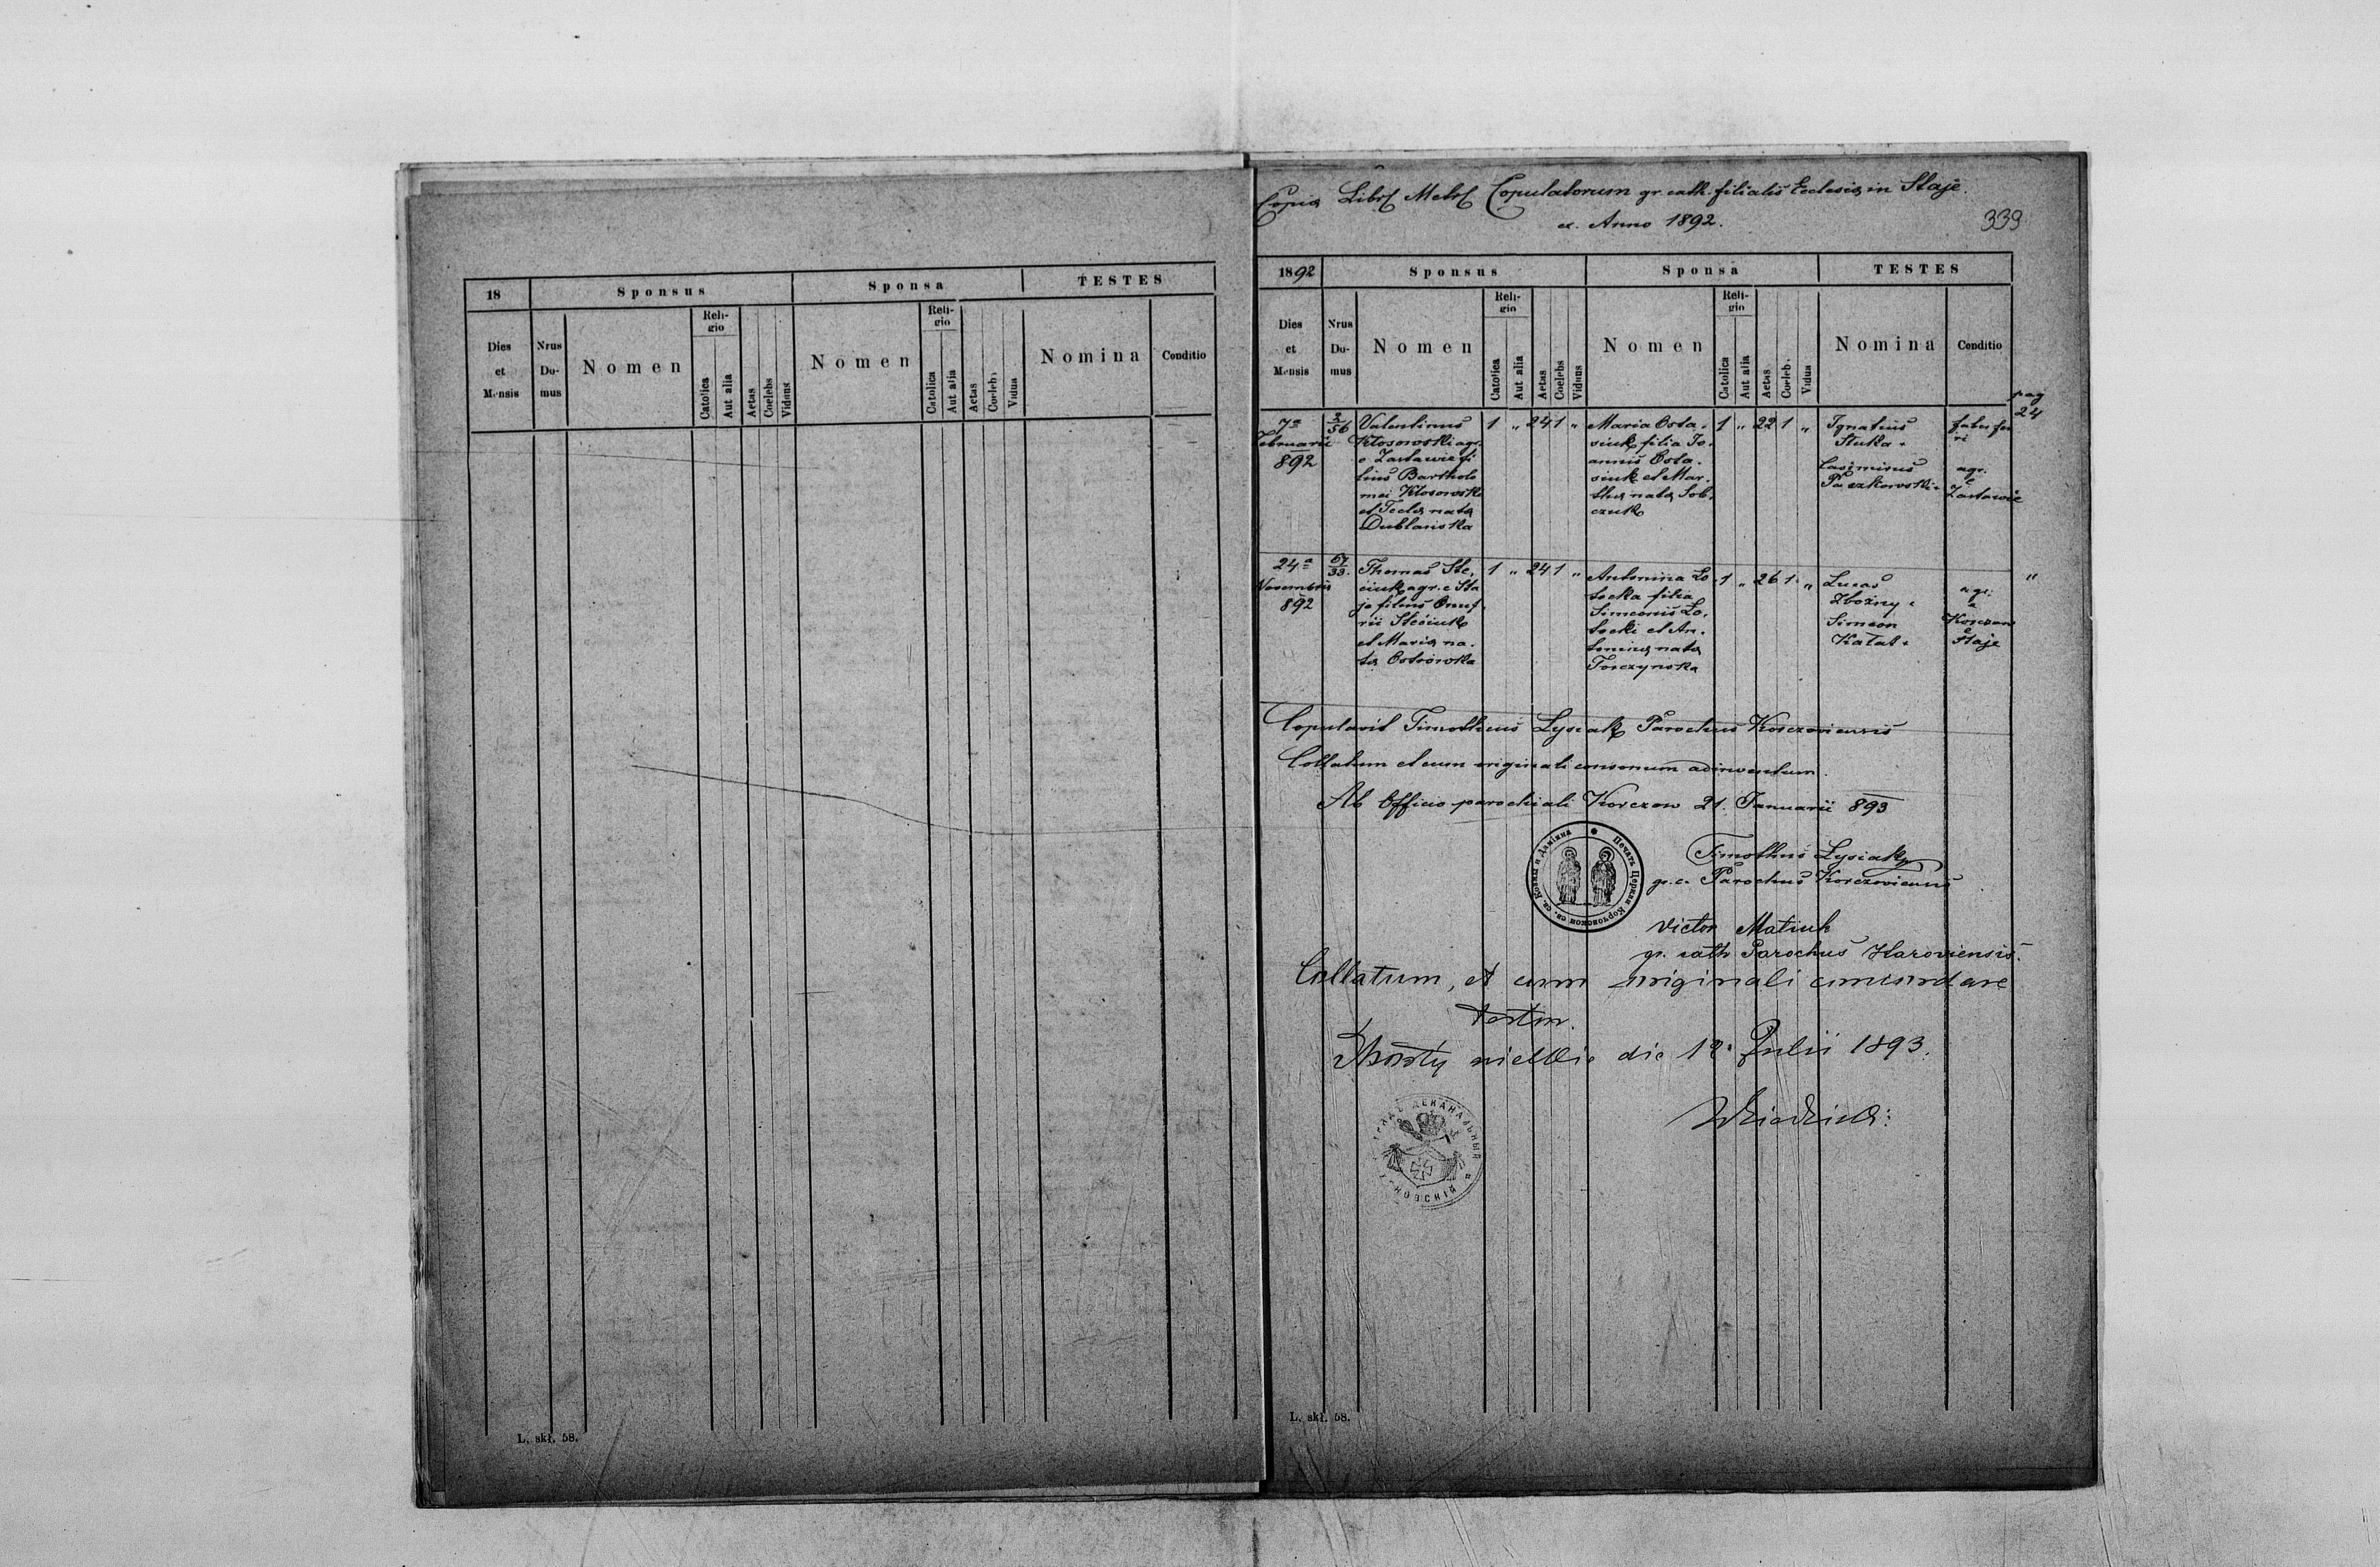 18
Sponsus
Sponsa
TESTES
Dies et Mensis
Nrus Domus
Nomen
Religio
Catolica
Aut alia
Aetas
Coelebs
Viduus
Nomen
Religio
Catolica
Aut alia
Aetas
Coeleb.
Vidua
Nomina
Conditio
L. skł. 58.
Copia Libri Metr Copulatorum gr. cath. filialis Ecclesia in Staje.
ex. Anno 1892.
339
1892
Sponsus
Sponsa
TESTES
Dies
et
Mensis
Nrus
Do-
mus
Nomen
Reli-
gio
Catolica
Aut alia
Aetas
Coelebs
Viduus
Nomen
Reli-
gio
Catolica
Aut alia
Aetas
Coeleb.
Vidua
Nomina
Conditio
pag
24
7a
Februarii
892
2/56
Valentinus
Kłosowski agr.
e Zastawie fi
lius Bartholo
mei Kłosowski
et Tecla nata
Dublanska
1 " 24 1 "
Maria Osta-
siuk filia Jo-
annis Osta-
siuk et Mar-
tha nata Sob-
czuk
1 " 22 1 "
Ignatius
Stuka
Casimirus
Paczkowski
faber fer
ri
agr.
e
Zastawie
24a
Novembris
892
57/33.
Thomas Ste-
ciuk agr. e Sta
je filius Onuf
rii Steciuk
et Maria na-
ta Ostrowska
1 " 24 1 "
Antonina Ło
tocka filia
Simeonis Ło-
tocki et An-
tonina nata
Torczynska
1 " 26 1 "
Lucas
Zbożny
Simeon
Kałat
agr.
e
Korczow
e
Staje
"
Copulavit Timotheus Lysiak Parochus Korczoviensis
Collatum et cum originali consonum adinventum.
Ab Officio parochiali Korczow 21. Januarii 893
Печать Церкви Корчовской св. св. Козмы и Даміяна
Timotheus Lysiak
gr. c. Parochus Korczoviensis
Victor Matiuk
gr. cath Parochus Karoviensis.
Collatum, et cum originali concordare
testor.
die 12. Julii 1893.
ДЕКАНАЛЬНЫЙ
L. skł. 58.